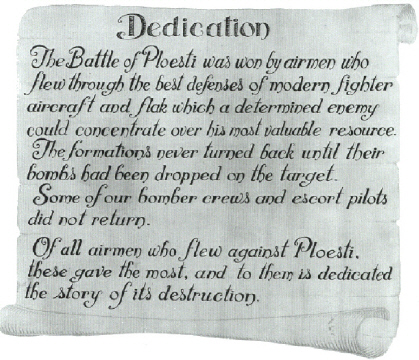 Dedication
The Battle of Ploesti was won by airmen who
flew through the best defenses of modern fighter
aircraft and flak which a determined enemy
could concentrate over his most valuable resource.
The formations never turned back until their
bombs had been dropped on the target.
Some of our bomber crews and escort pilots
did not return.
Of all airmen who flew against Ploesti,
these gave the most, and to them is dedicated
the story of its destruction.